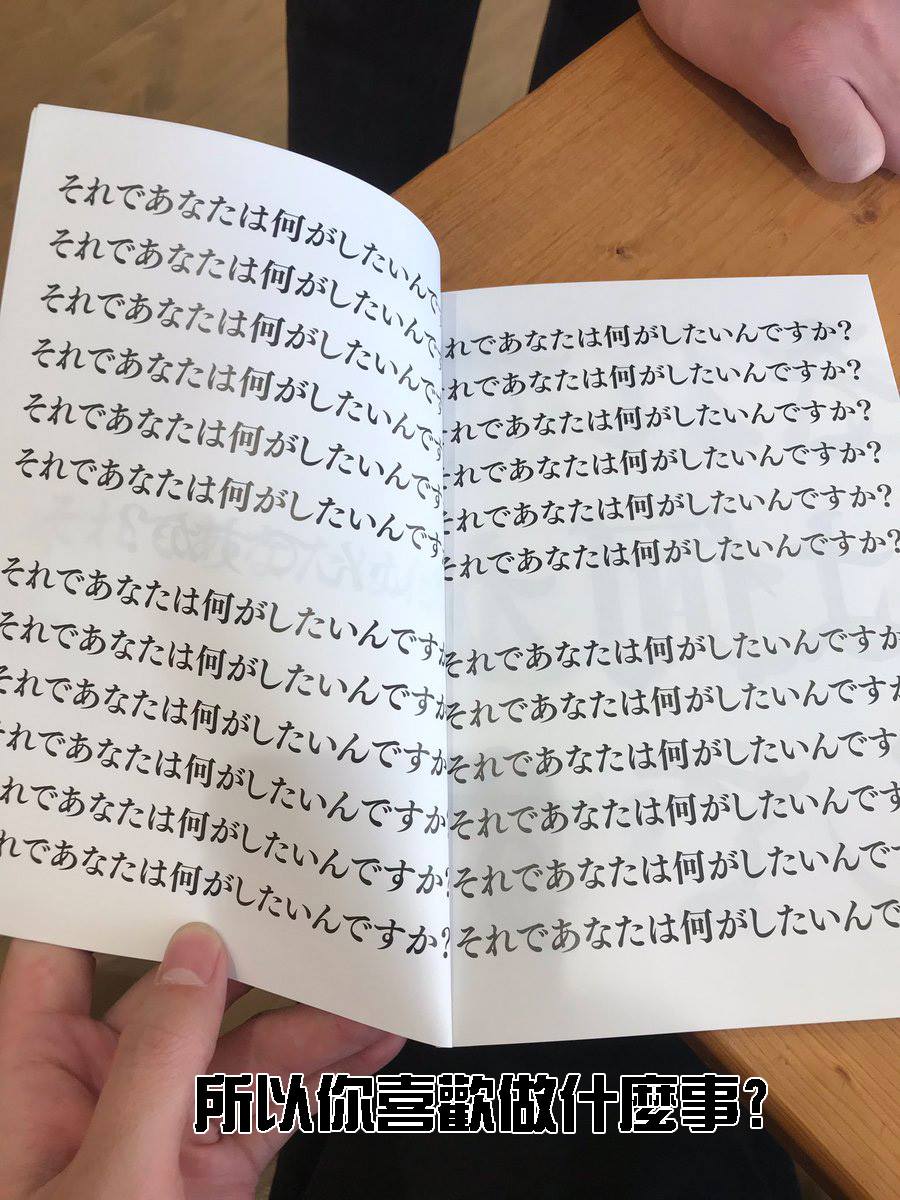 それであなたは何がしたいんで
それであなたは何がしたいんで
それであなたは何がしたいんで
それであなたは何がしたいんです
それであなたは何がしたいんです
それであなたは何がしたいんです
それであなたは何がしたいんですか
それであなたは何がしたいんですか
それであなたは何がしたいんですか
れであなたは何がしたいんですか
れであなたは何がしたいんですか?
れであなたは何がしたいんですか?
れであなたは何がしたいんですか?
れであなたは何がしたいんですか?
れであなたは何がしたいんですか?
れであなたは何がしたいんですか?
それであなたは何がしたいんですか?
それであなたは何がしたいんですか?
それであなたは何がしたいんですか
それであなたは何がしたいんですか
それであなたは何がしたいんです
それであなたは何がしたいんです
それであなたは何がしたいんで
それであなたは何がしたいんで
所以你喜歡做什麼事?